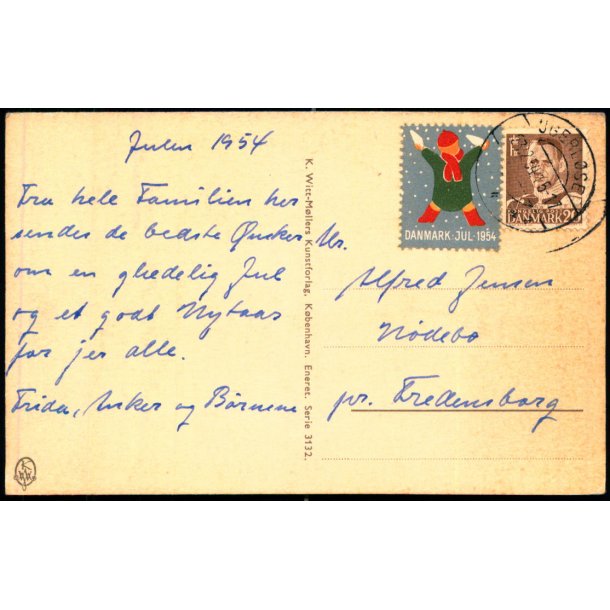 Julen 1954
Fra hele Familien her
sendes de bedste Ønsker
om en glædelig Jul
og et godt Nytaar
for jer alle.
Frida, Anker og Børnene
K. Witt-Møllers Kunstforlag. København. Eneret. Serie 3132.
DANMARK·JUL·1954
DANMARK 20
Hr.
Alfred Jensen
Nødebo
pr. Fredensborg